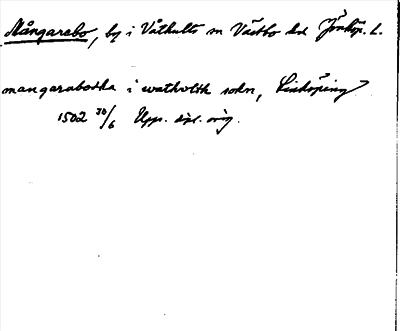 Mångarebo, by i Våthults sn Västbo hd Jönköp. l.
mangaraboska i watholsk sokn, Linköping
1502 30/6 Upp. dipl. orig.